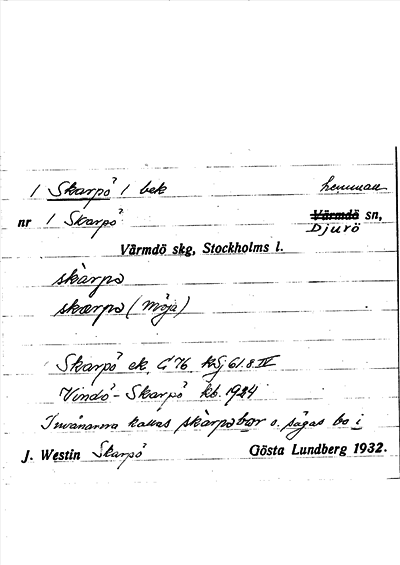 1 Skarpö 1 bek hemman
nr 1 Skarpö Värmdö sn,
Djurö
Värmdö skg, Stockholms l.
skàrpə
skærpə (Möja)
Skarpö ek. G 76 KSj 61.8.IV
Vindö-Skarpö kb. 1924
Invånarna kallas skàrpəbor o. sägas bo i
J. Westin Skarpö Gösta Lundberg 1932.